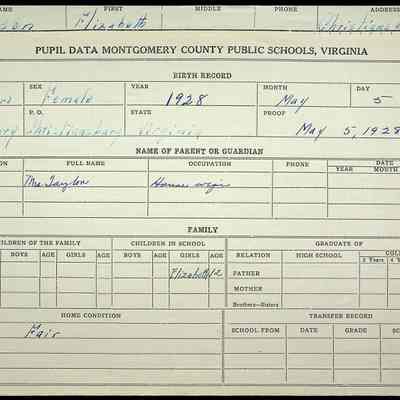 AME FIRST MIDDLE PHONE ADDRESS
Elizabeth Christians
PUPIL DATA MONTGOMERY COUNTY PUBLIC SCHOOLS, VIRGINIA
BIRTH RECORD
SEX YEAR MONTH DAY
Female 1928 May 5
P. O. STATE PROOF
Christiansburg Virginia May 5, 1928
NAME OF PARENT OR GUARDIAN
ON FULL NAME OCCUPATION PHONE DATE
YEAR MONTH
Mrs Taylor House wife
FAMILY
HILDREN OF THE FAMILY CHILDREN IN SCHOOL GRADUATE OF
BOYS AGE GIRLS AGE BOYS AGE GIRLS AGE RELATION HIGH SCHOOL COL
2 Years 4 Y
Elizabeth 12 FATHER
MOTHER
Brothers—Sisters
HOME CONDITION TRANSFER RECORD
Fair SCHOOL FROM DATE GRADE SC